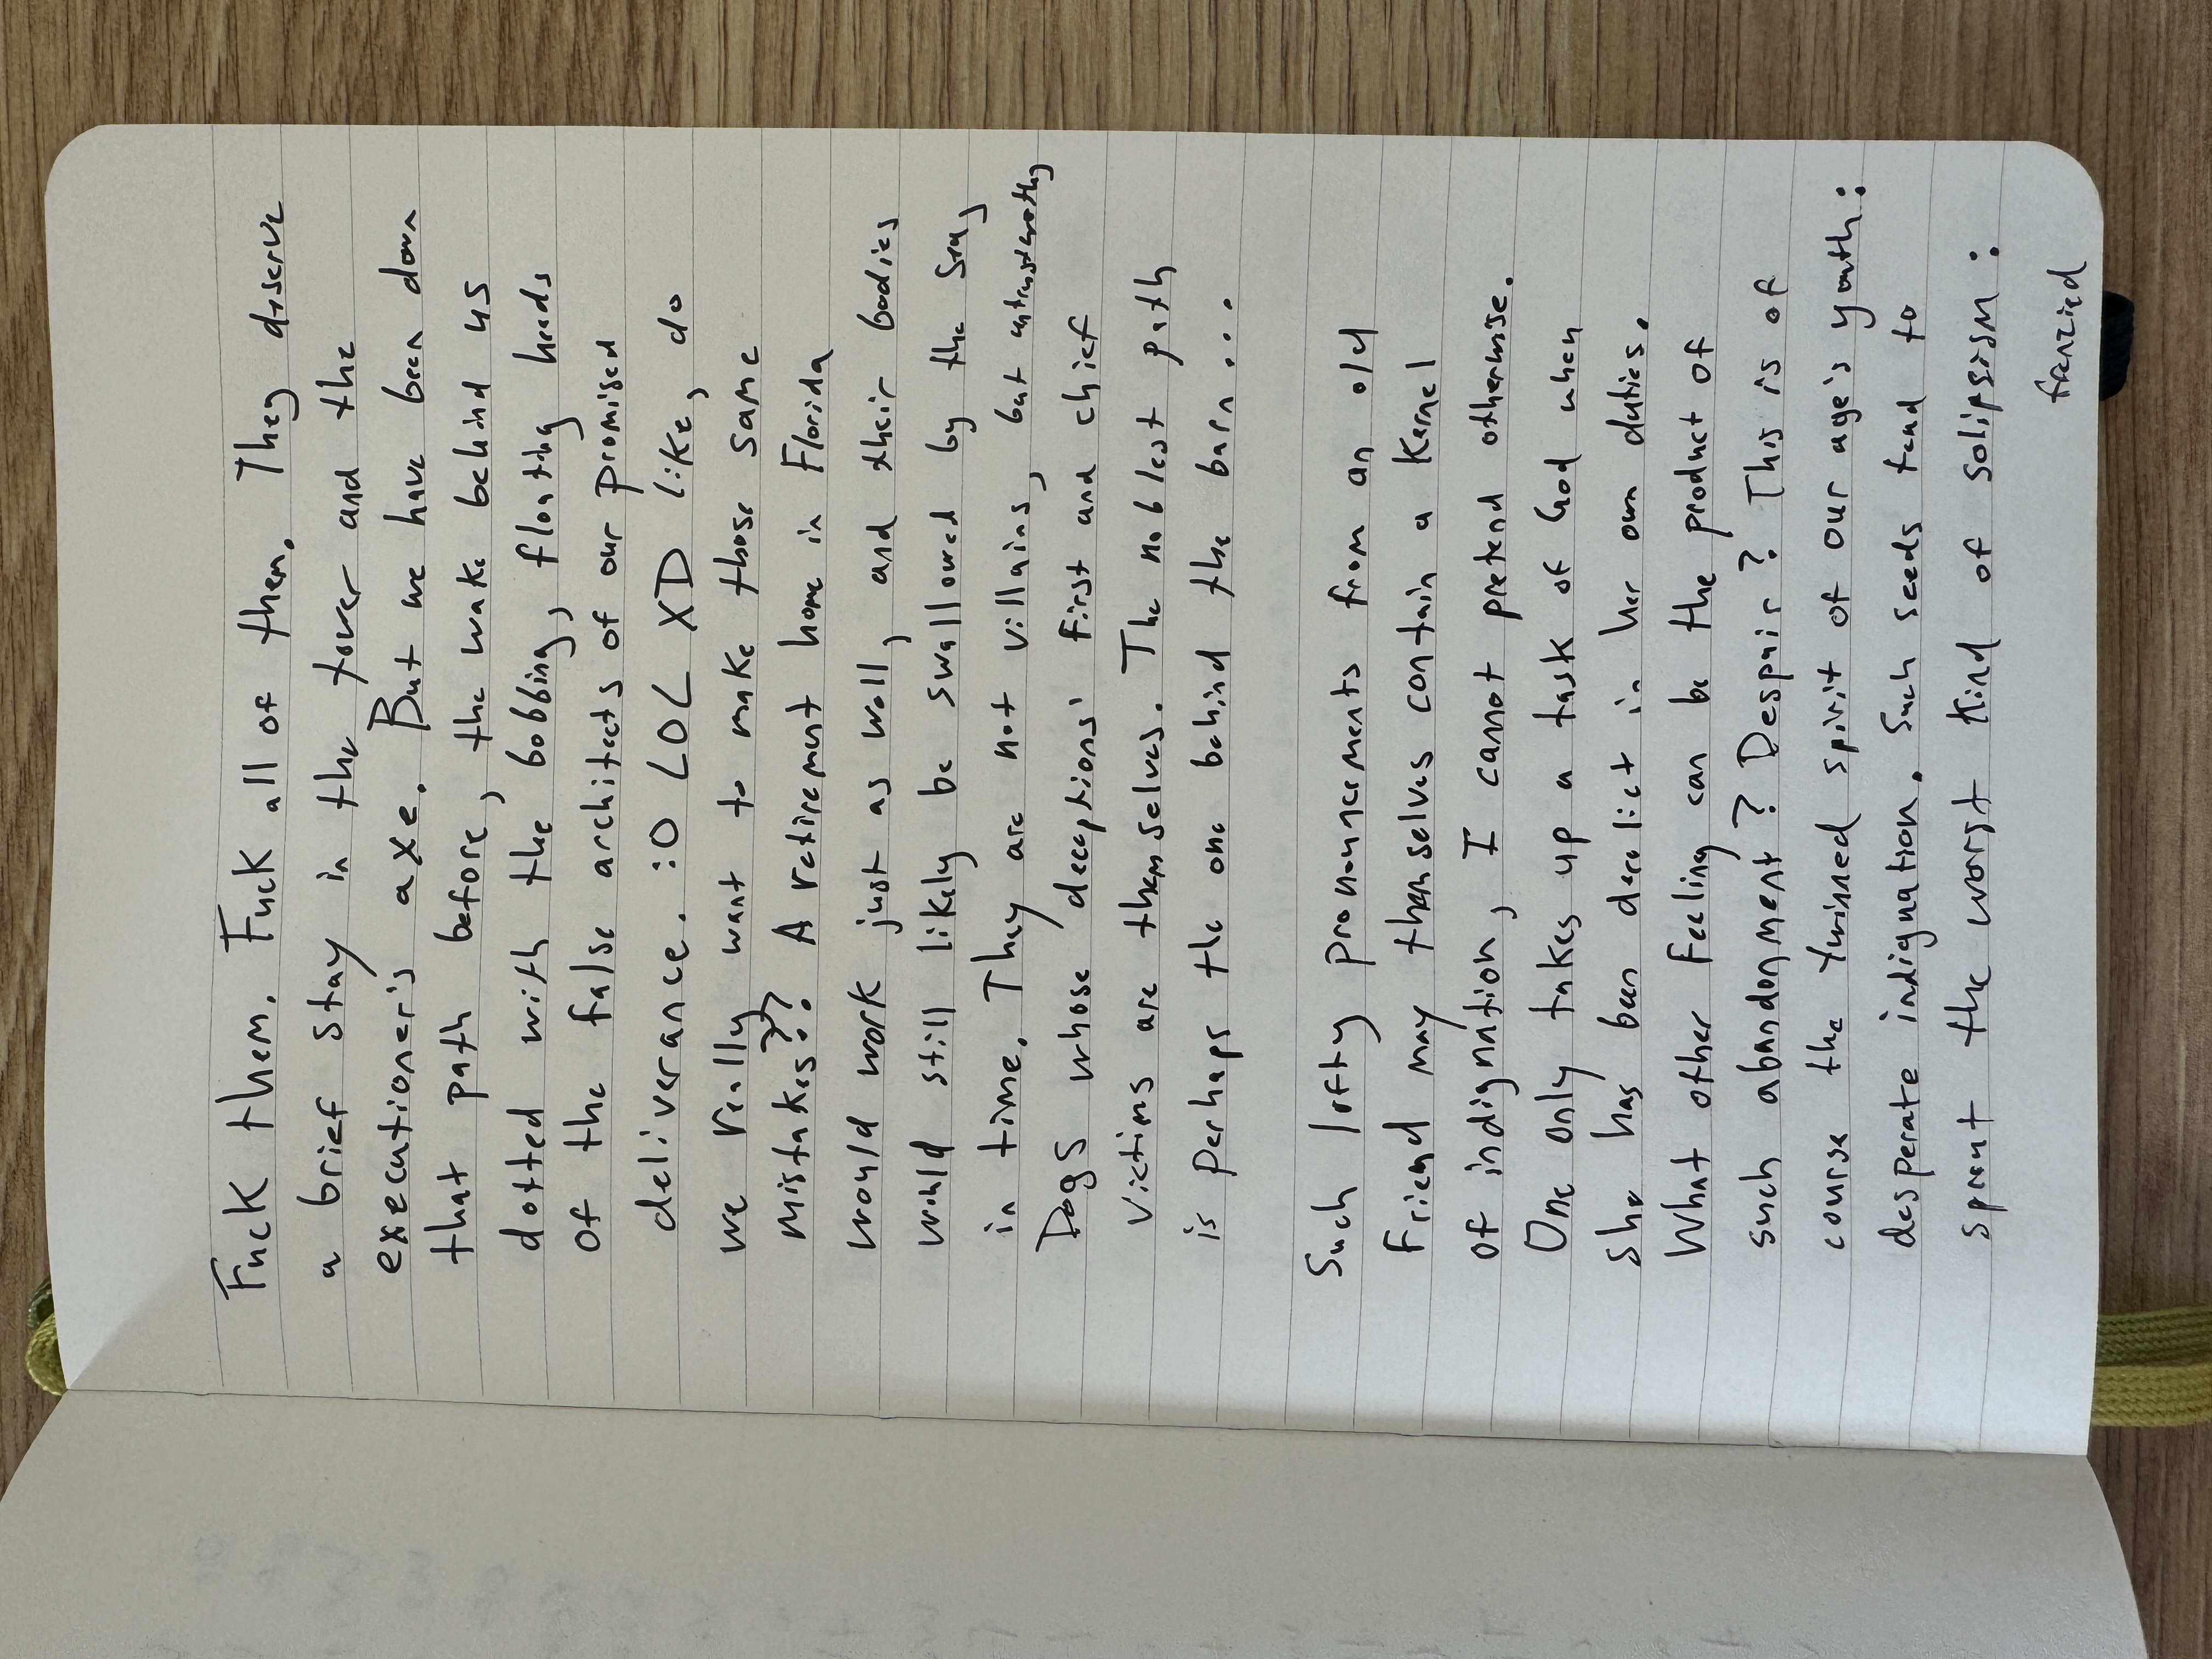 Fuck them. Fuck all of them. They deserve
a brief stay in the tower and the
executioner's axe. But we have been down
that path before, the wake behind us
dotted with the bobbing, floating heads
of the false architects of our promised
deliverance. :O LOL XD like, do
we really want to make those same
mistakes?? A retirement home in Florida
would work just as well, and their bodies
would still likely be swallowed by the sea,
in time. They are not villains, but untrustworthy
Dogs whose deceptions' first and chief
victims are themselves. The noblest path
is perhaps the one behind the barn...
Such lofty pronouncements from an old
friend may themselves contain a kernel
of indignation, I cannot pretend otherwise.
One only takes up a task of God when
she has been derelict in her own duties.
What other feeling can be the product of
such abandonment? Despair? This is of
course the twinned spirit of our age's youth:
desperate indignation. Such seeds tend to
sprout the worst kind of solipsism:
frenzied